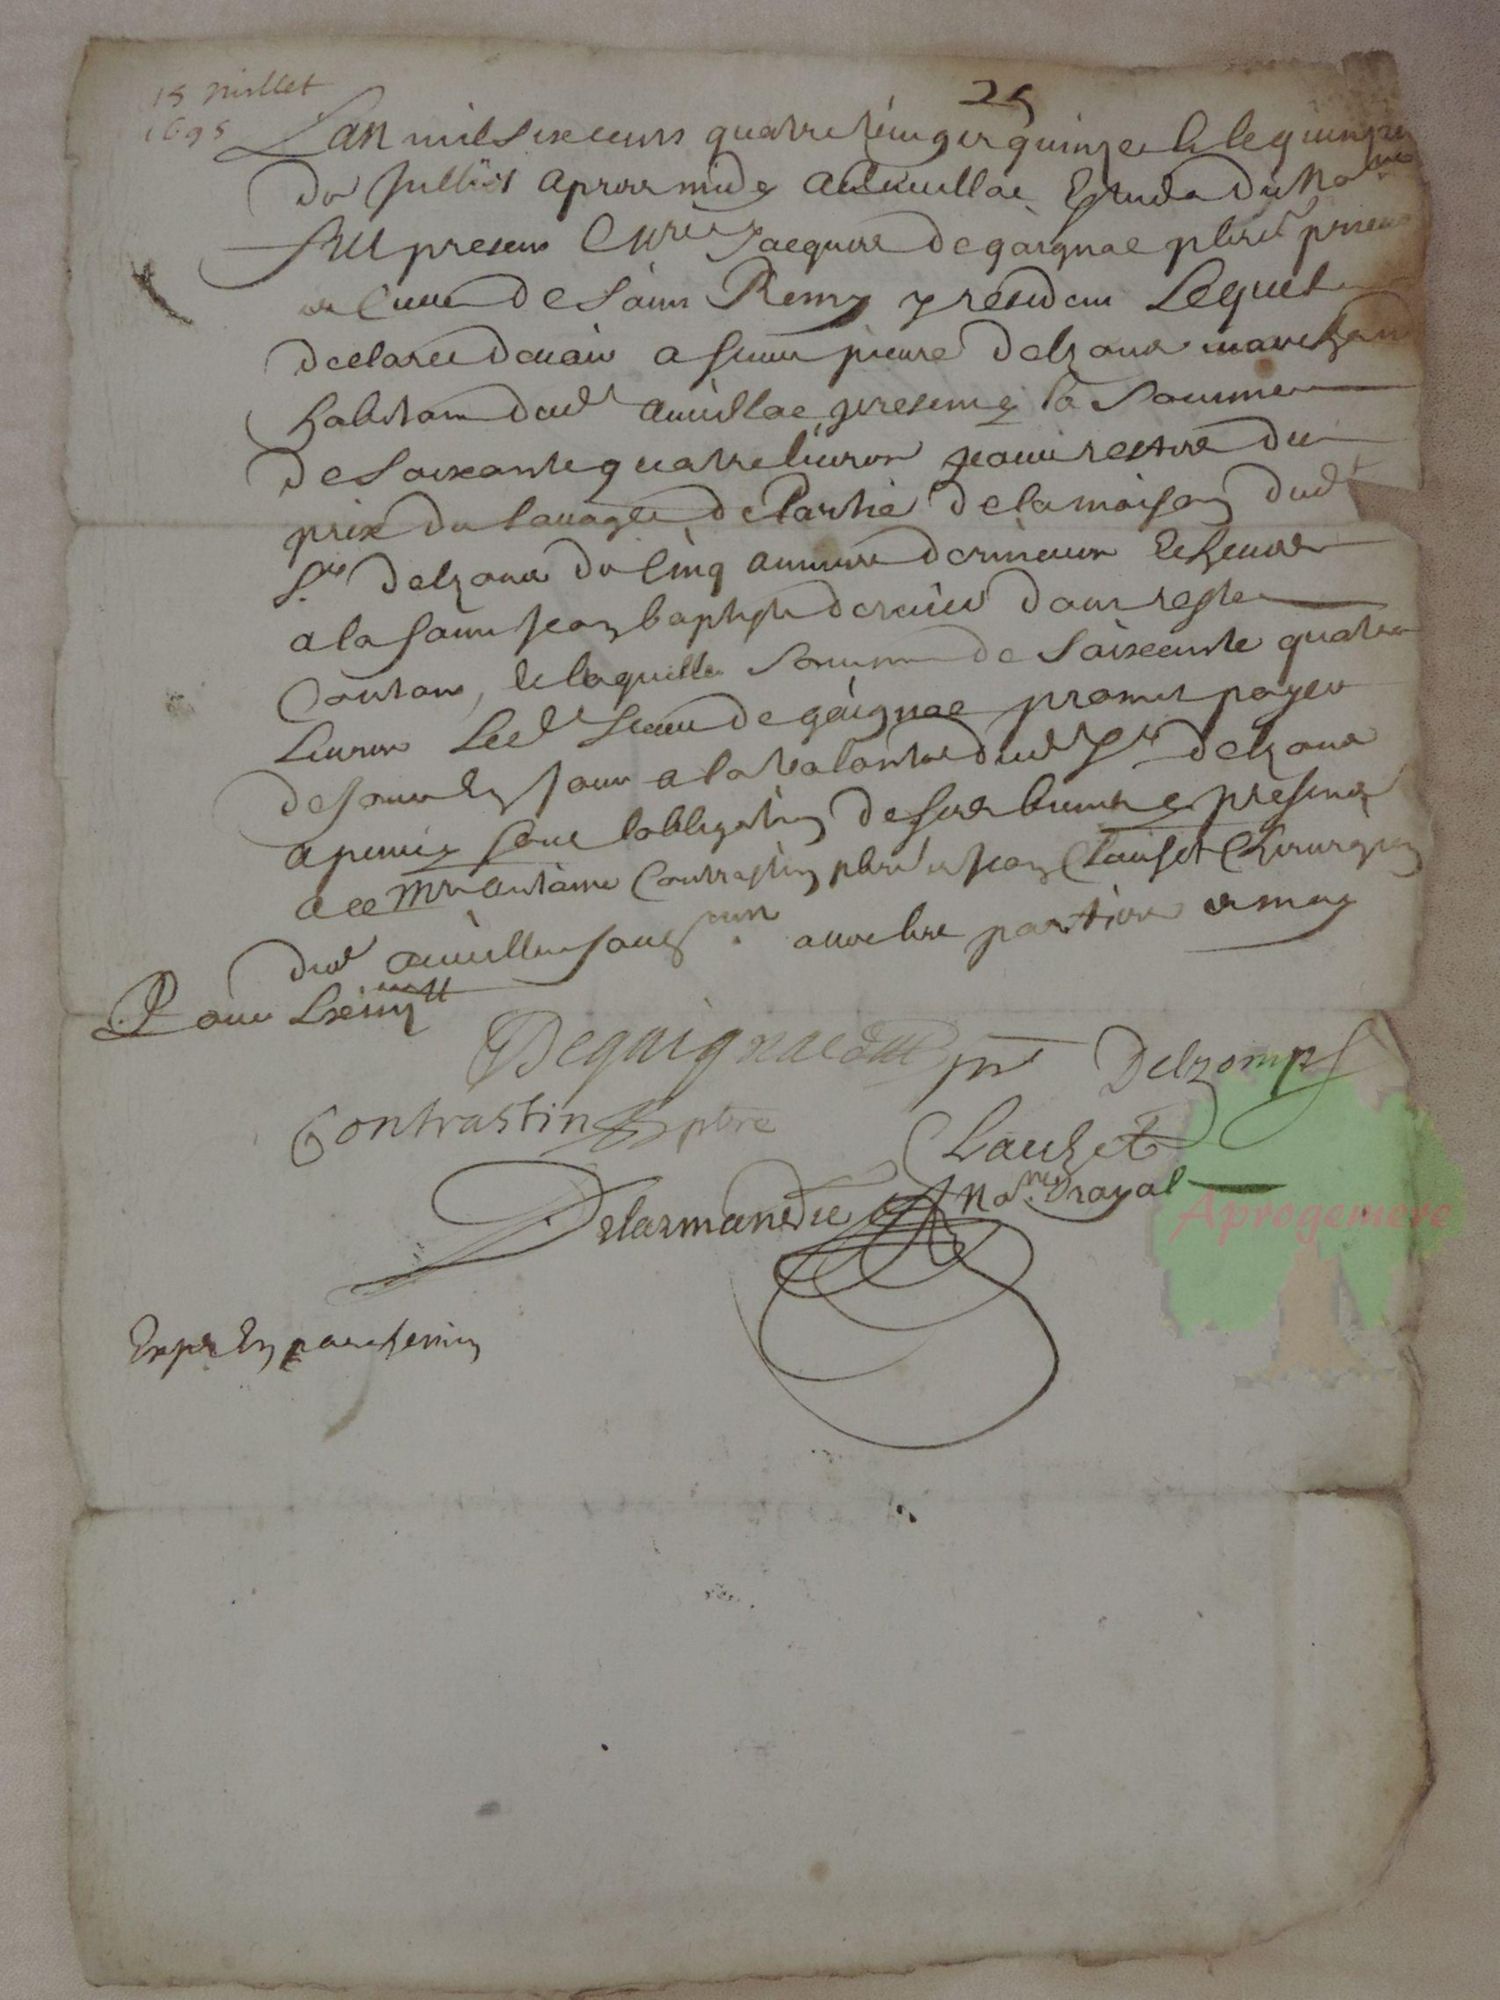 25
15 Juillet
1695
Lan mil six cens quatre vingt quinze & le quinze
du Juilliet apres midy a Aurillac Estude du No.re
fut presens Mre Jacques de gaignac pbre prieur
et Cure de Saint Remy y residant Lequel
declare devoir a sieur pierre delzons marchand
habitant dud Aurillac presens la somme
de soixante quatre livres pour reste du
prix du louage de Partie de la maison dud
Sr. delzons de cinq annees dernieres Echeues
a la saint Jean baptiste dernier dont reste
Contans, de laquelle somme de soixante quatre
Livres Led Sieur de gaignac promet payer
de jour En jour a la volonte dud Sr delzons
a peine sous lobligation de ses biens presens
a ce Mre Antoine Contrastin pbre et Jean Clauset Chirurgien
dud Aurillac sous.nes avec les parties et moy
De gaignac pre Delzomps
Contrastin pbre
Lauzet
Delarmandie No.re Royal
Aprogemere
Exp.e En parchemin